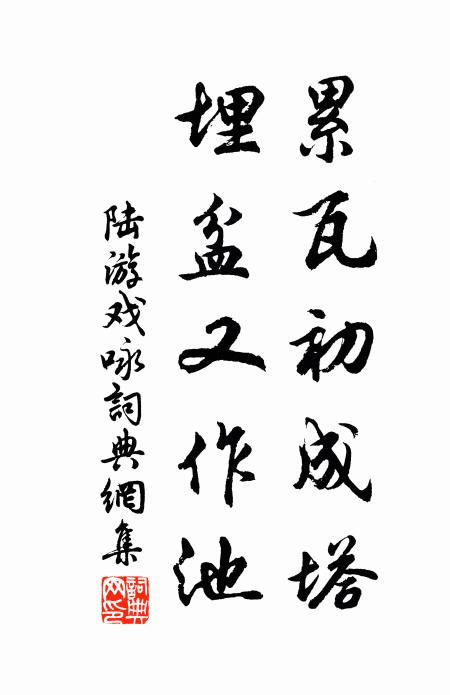 累瓦初成塔
埋盆又作池
陆游戏咏詞典網集
詞典网印